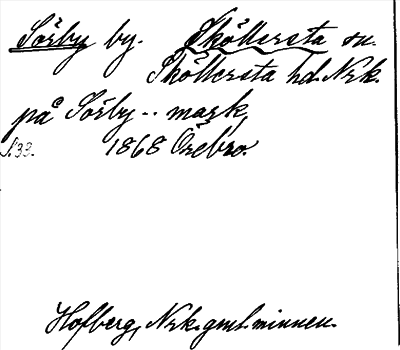 Sörby by. Sköllersta sn.
Sköllersta hd. Nrk.
på Sörby -- mark,
S.33. 1868 Örebro.
Hofberg, Nrk. gml. minnen.